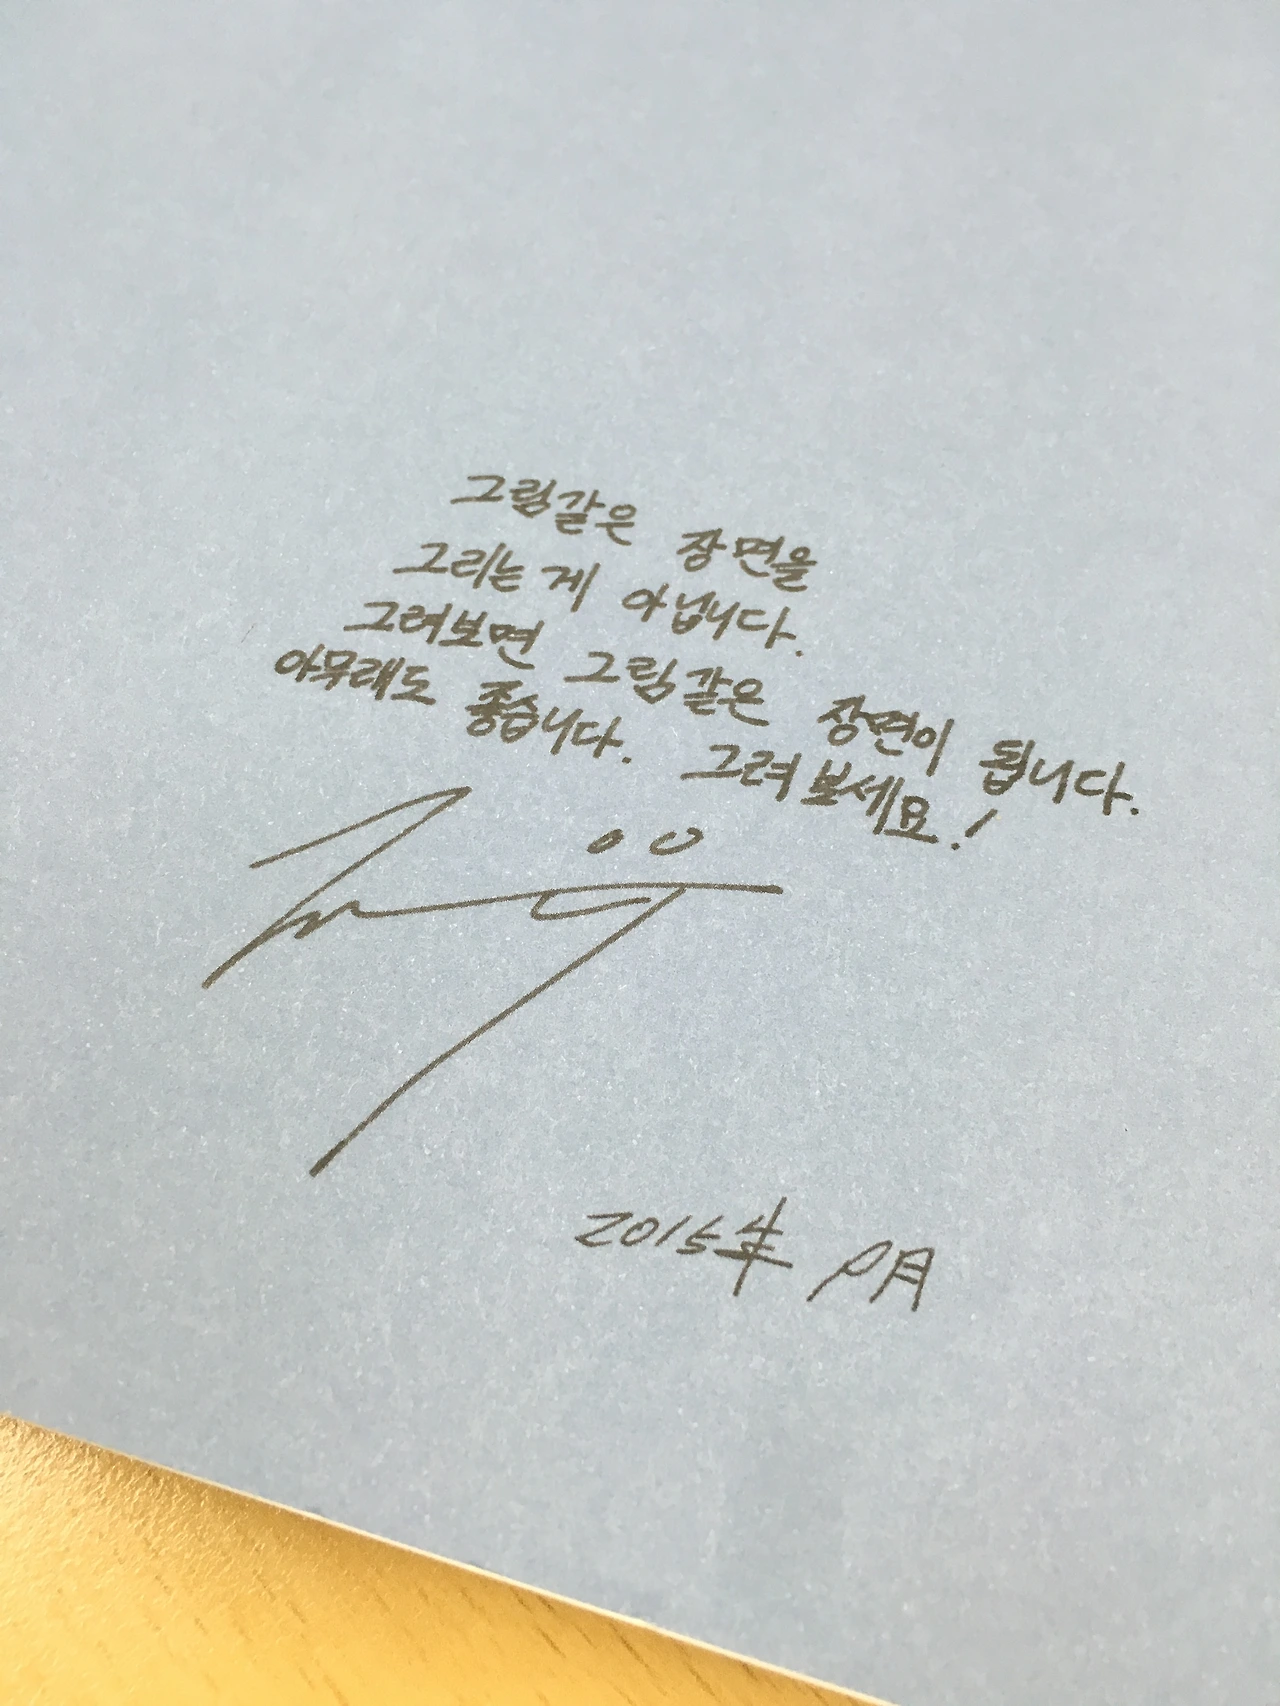 그림같은 장면을
그리는 게 아닙니다.
그려보면 그림같은 장면이 됩니다.
아무래도 좋습니다. 그려보세요!
2015年 月